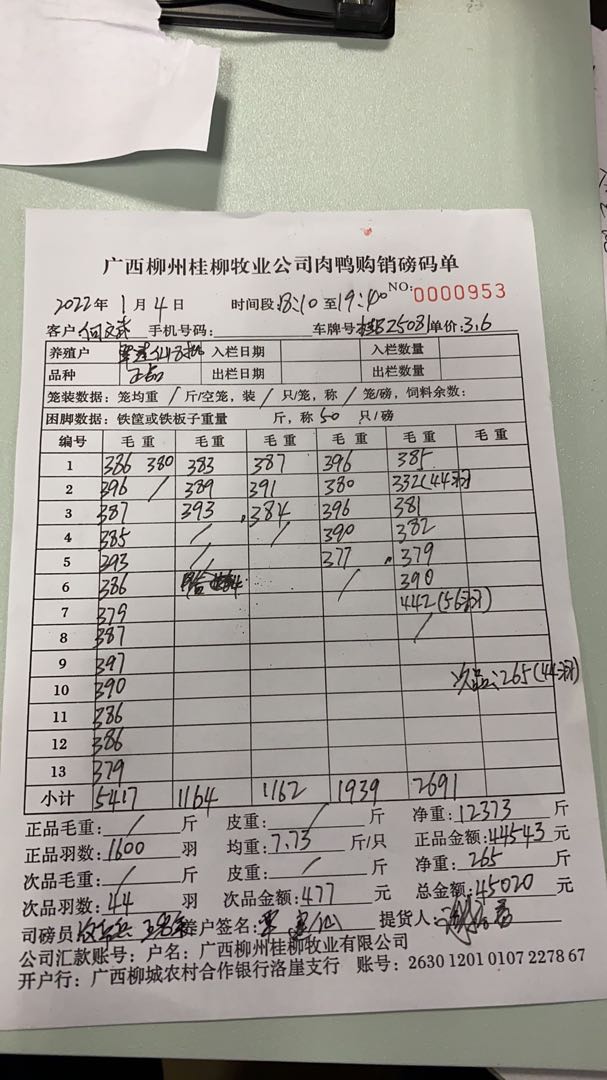 广西柳州桂柳牧业公司肉鸭购销磅码单
2022年 1月 4日 时间段:18:10 至19:40 NO:0000953
客户: 手机号码: 车牌号: 25081 单价:3.6
养殖户 入栏日期 入栏数量
品种 正品 出栏日期 出栏数量
笼装数据: 笼均重 / 斤/空笼, 装 / 只/笼, 称 / 笼/磅, 饲料余数:
困脚数据: 铁筐或铁板子重量 斤, 称 50 只/磅
编号 毛重 毛重 毛重 毛重 毛重 毛重
1 386 380 383 387 396 385
2 396 / 389 391 380 332(44羽)
3 387 393 384 396 381
4 385 / / 390 382
5 393 / 377 379
6 386 / 390
7 379 442(56羽)
8 387 /
9 397
10 390 次品:265(44羽)
11 386
12 386
13 379
小计 5417 1164 1162 1939 2691
正品毛重: / 斤 皮重: / 斤 净重:12373 斤
正品羽数:1600 羽 均重:7.73 斤/只 正品金额:44543 元
次品毛重: / 斤 皮重: / 斤 净重:265 斤
次品羽数:44 羽 次品金额:477 元 总金额:45020 元
司磅员 养户签名: 提货人:
公司汇款账号: 户名: 广西柳州桂柳牧业有限公司
开户行: 广西柳城农村合作银行洛崖支行 账号: 2630 1201 0107 2278 67